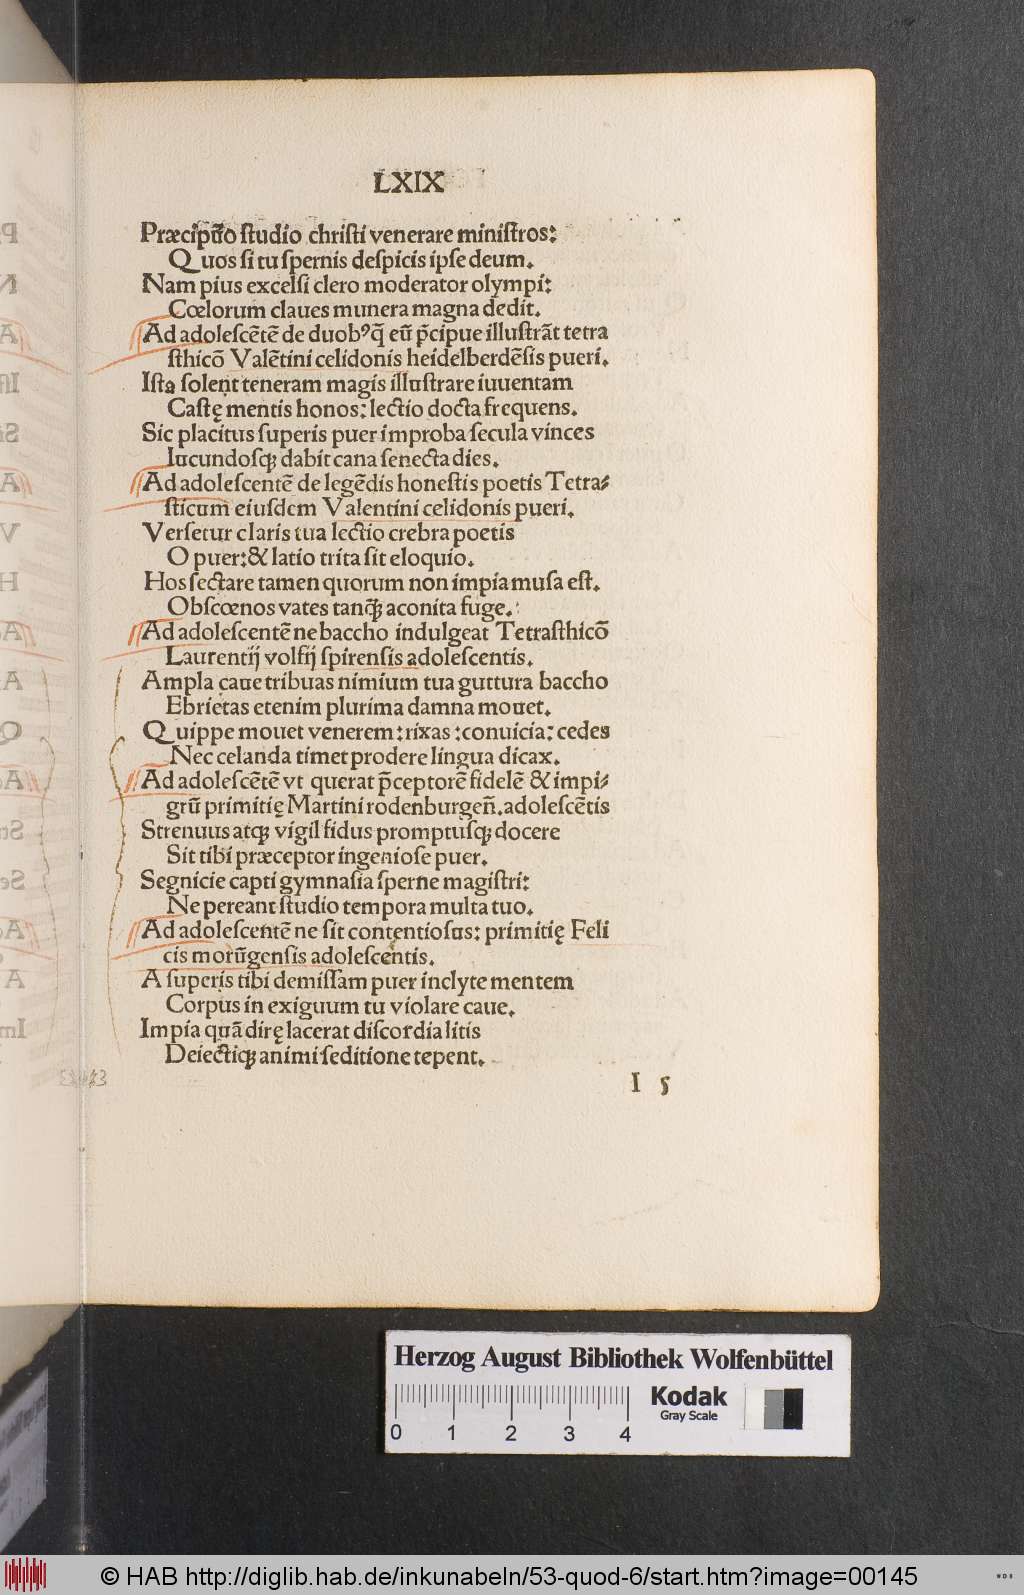 LXIX
Præcipūo ſtudio chriſti venerare miniſtros:
Quos ſi tu ſpernis deſpicis ipſe deum.
Nam pius excelſi clero moderator olympi:
Cœlorum claues munera magna dedit.
Ad adoleſcētē de duobꝰ q̄ eū p̄cipue illuſtrāt tetra
ſthicō Valētini celidonis heidelberdēſis pueri.
Iſta ſolent teneram magis illuſtrare iuuentam
Caſtę mentis honos: lectio docta frequens.
Sic placitus ſuperis puer improba ſecula vinces
Iucundoſqꝫ dabit cana ſenecta dies.
Ad adoleſcentē de legēdis honeſtis poetis Tetra⸗
ſticum eiuſdem Valentini celidonis pueri.
Verſetur claris tua lectio crebra poetis
O puer: & latio trita ſit eloquio.
Hos ſectare tamen quorum non impia muſa eſt.
Obſcœnos vates tanq̄ꝫ aconita fuge.
Ad adoleſcentē ne baccho indulgeat Tetraſthicō
Laurentij volfij ſpirenſis adoleſcentis.
Ampla caue tribuas nimium tua guttura baccho
Ebrietas etenim plurima damna mouet.
Quippe mouet venerem: rixas: conuicia: cedes
Nec celanda timet prodere lingua dicax.
Ad adoleſcētē vt querat p̄ceptorē fidelē & impi⸗
grū primitię Martini rodenburgen̄. adoleſcētis
Strenuus atqꝫ vigil fidus promptuſqꝫ docere
Sit tibi præceptor ingenioſe puer.
Segnicie capti gymnaſia ſperne magiſtri:
Ne pereant ſtudio tempora multa tuo.
Ad adoleſcentē ne ſit contentioſus: primitię Feli
cis morūgenſis adoleſcentis.
A ſuperis tibi demiſſam puer inclyte mentem
Corpus in exiguum tu violare caue.
Impia quā dirę lacerat diſcordia litis
Deiectiqꝫ animi ſeditione tepent.
I 5
Herzog August Bibliothek Wolfenbüttel
Kodak
Gray Scale
0 1 2 3 4
© HAB http://diglib.hab.de/inkunabeln/53-quod-6/start.htm?image=00145